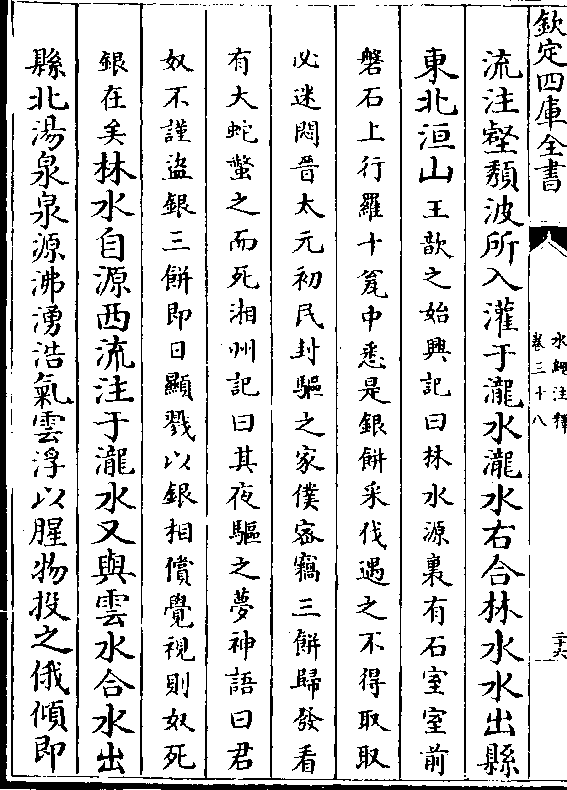 欽定四庫全書
水經注釋
卷三十八
二十六
流注壑頽波所入灌于瀧水瀧水右合林水水出縣
東北洹山王歆之始興記曰林水源裏有石室室前
磐石上行羅十瓫中悉是銀餅采伐遇之不得取取
必迷悶晉太元初民封驅之家僕密竊三餅歸發看
有大蛇螫之而死湘州記曰其夜驅之夢神語曰君
奴不謹盜銀三餅即日顯戮以銀相償覺視則奴死
銀在矣林水自源西流注于瀧水又與雲水合水出
縣北湯泉泉源沸湧浩氣雲浮以腥物投之俄傾即